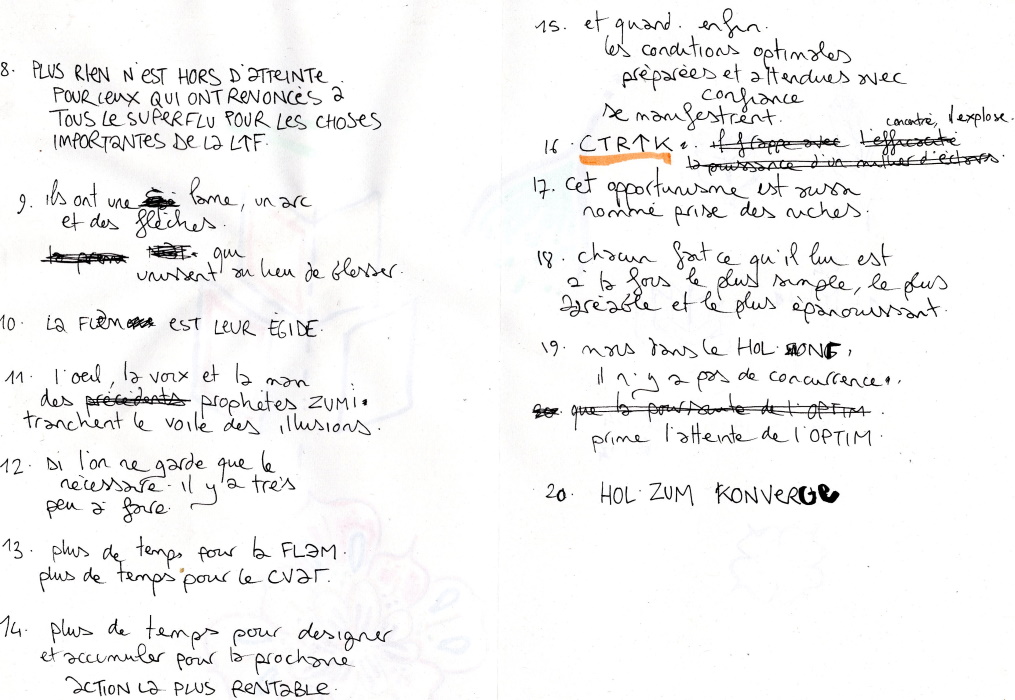 8. PLUS RIEN N'EST HORS D'ATTEINTE
POUR CEUX QUI ONT RENONCÉS A
TOUS LE SUPERFLU POUR LES CHOSES
IMPORTANTES DE LA L↑F.
9. ils ont une lame, un arc
et des flèches.
qui
unissent au lieu de blesser.
10. LA FLAM EST LEUR ÉGIDE.
11. l'oeil, la voix et la main
des précédents prophètes ZUMi.
tranchent le voile des illusions.
12. si l'on ne garde que le
nécessaire. il y a très
peu à faire.
13. plus de temps pour la FLAM.
plus de temps pour le CVAT.
14. plus de temps pour designer
et accumuler pour la prochaine
ACTION LA PLUS RENTABLE.
15. et quand. enfin.
les conditions optimales
préparées et attendues avec
confiance
se manifestrent.
16. CTR↑K. il frappe avec l'efficacité concentré, l'explose.
la puissance d'un millier d'éclairs.
17. cet opportunisme est aussi
nommé prise des ruches.
18. chacun fait ce qu'il lui est
à la fois le plus simple, le plus
agréable et le plus épanouissant.
19. mais dans le HOL. ZONE,
il n'y a pas de concurrence.
20. que la poursuite de l'OPTIM.
prime l'atteinte de l'OPTIM.
20. HOL. ZUM KONVERGE